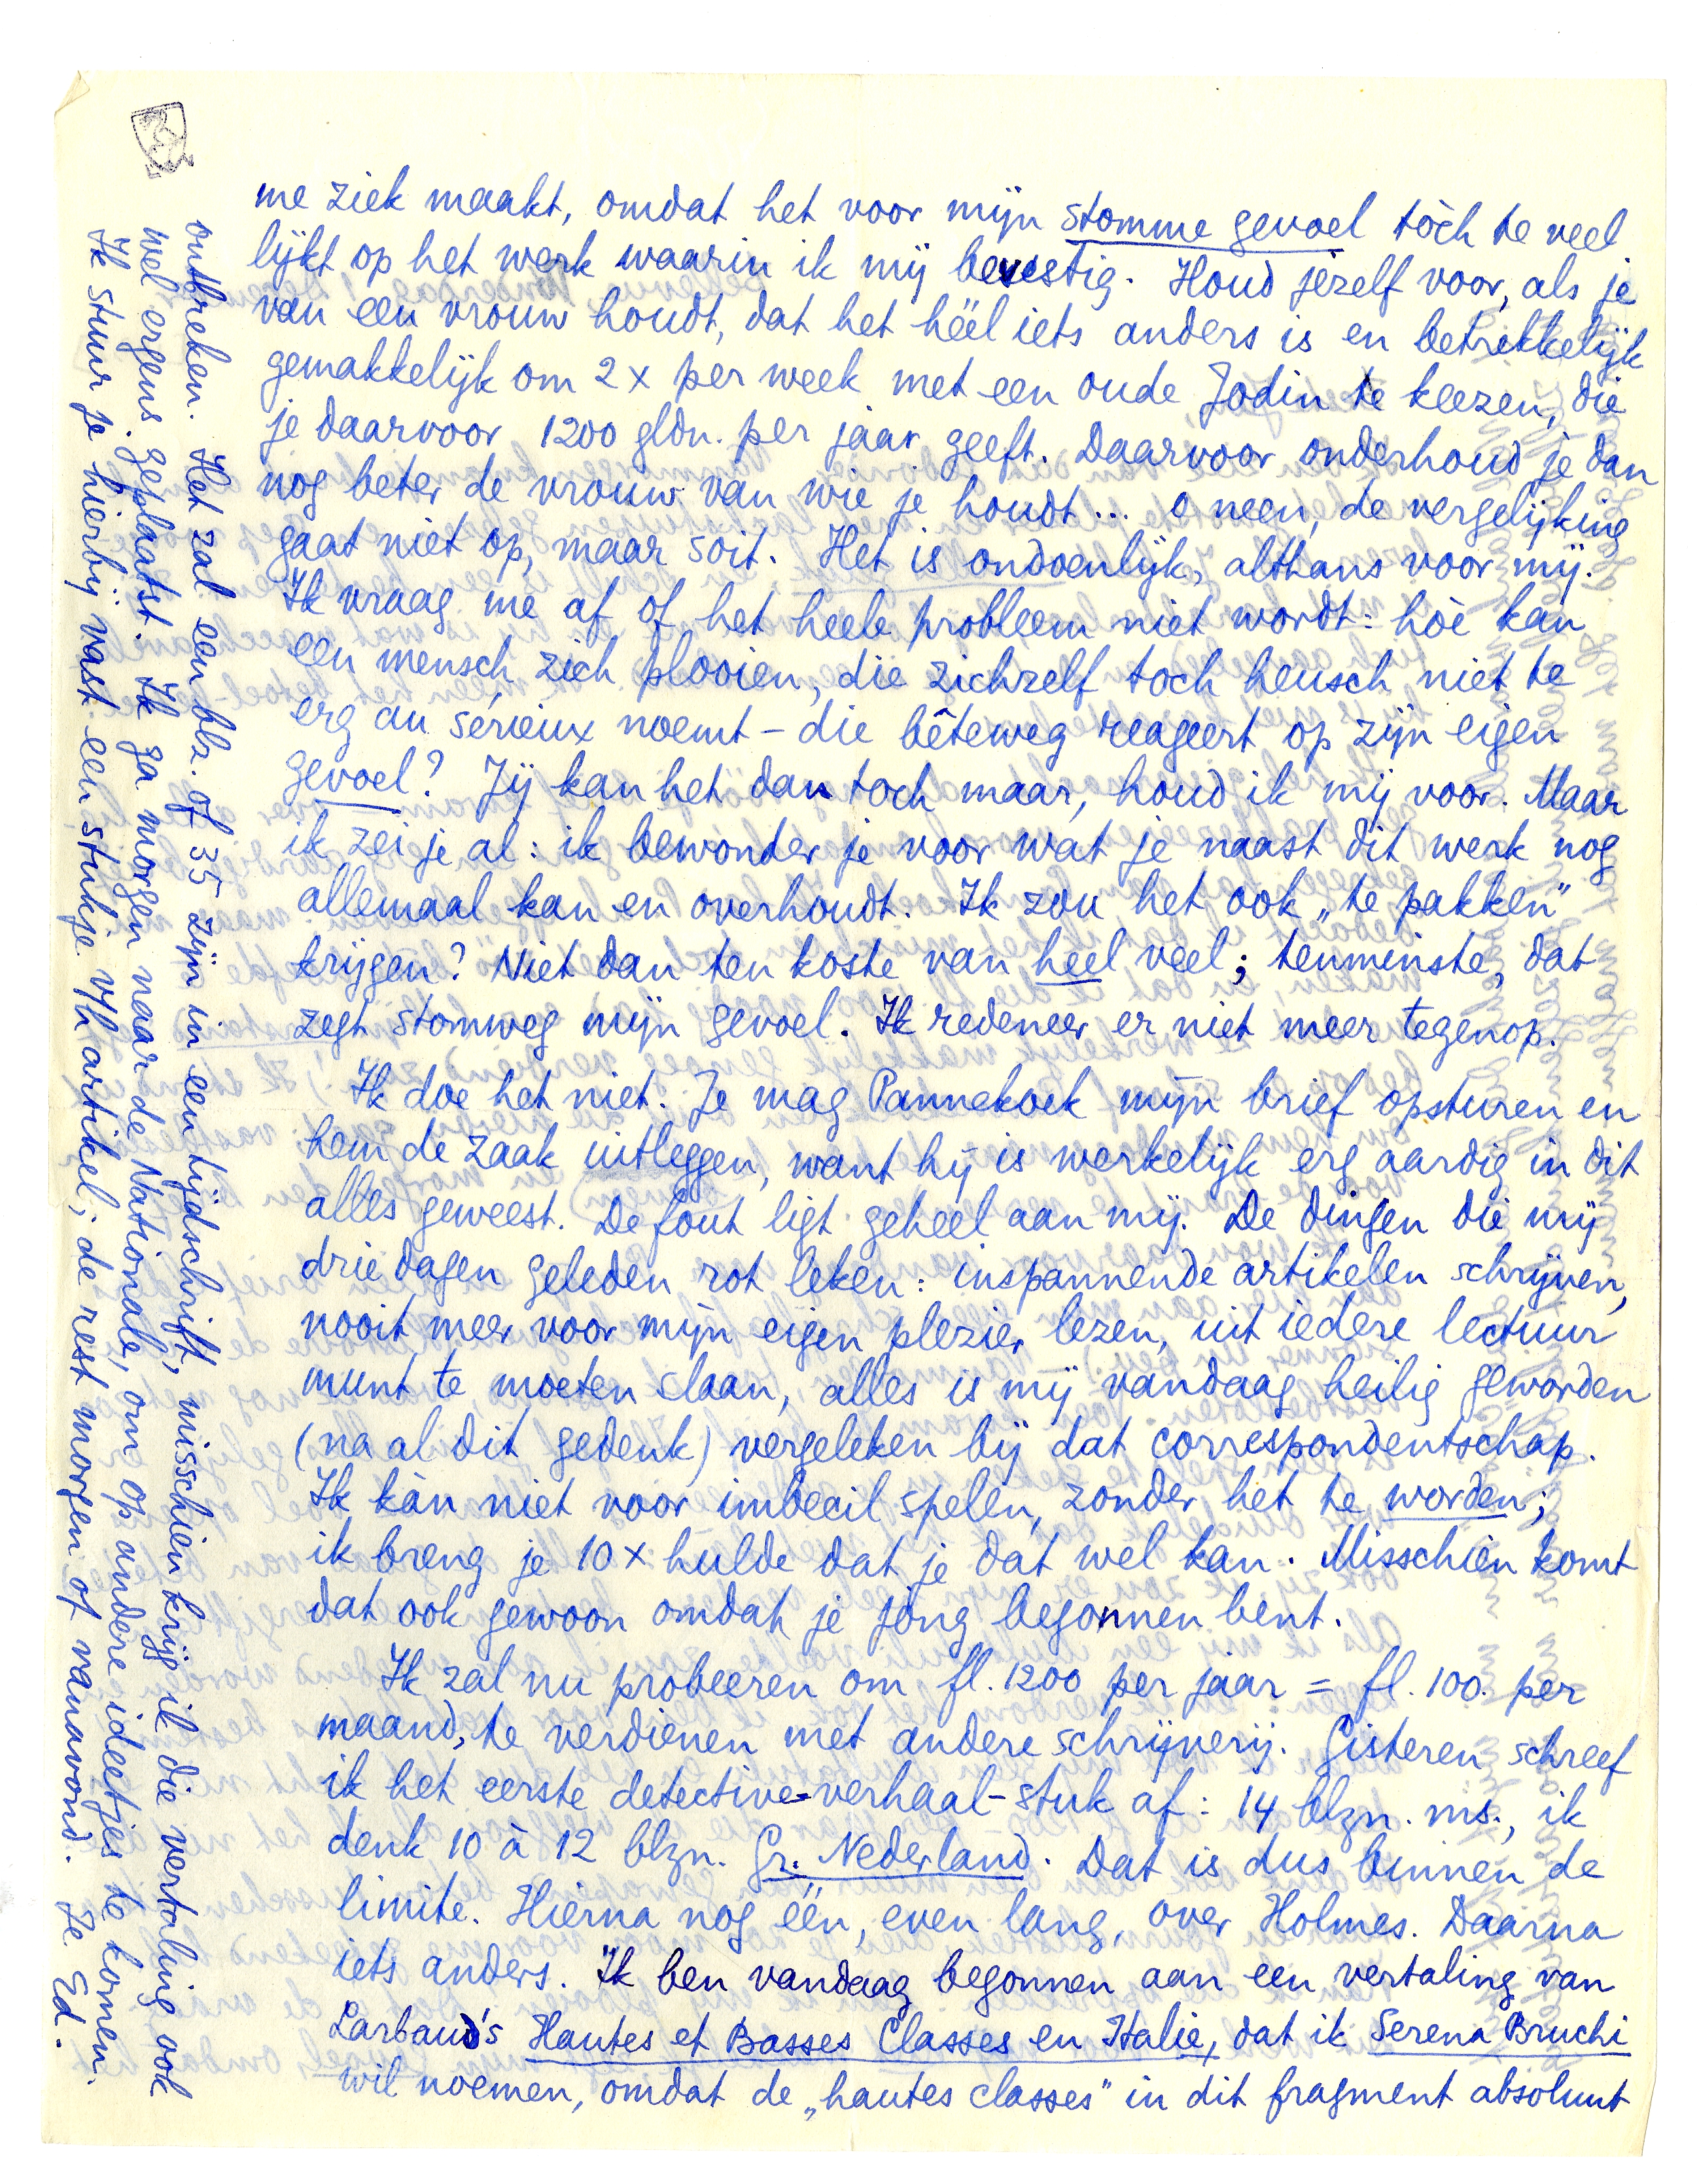 me ziek maakt, omdat het voor mijn stomme gevoel tòch te veel
lijkt op het werk waarin ik mij bevestig. Houd jezelf voor, als je
van een vrouw houdt, dat het héél iets anders is en betrekkelijk
gemakkelijk om 2 x per week met een oude Jodin te keezen, die
je daarvoor 1200 gldn. per jaar geeft. Daarvoor onderhoud je dan
nog beter de vrouw van wie je houdt... o neen, de vergelijking
gaat niet op, maar soit. Het is ondoenlijk, althans voor mij.
Ik vraag me af of het heele probleem niet wordt: hòè kan
een mensch zich plooien, die zichzelf toch heusch niet te
erg au sérieux neemt – die bêteweg reageert op zijn eigen
gevoel? Jij kan het dan toch maar, houd ik mij voor. Maar
ik zei je al: ik bewonder je voor wat je naast dit werk nog
allemaal kan en overhoudt. Ik zou het ook „te pakken"
krijgen? Niet dan ten koste van heel veel; tenminste, dat
zegt stomweg mijn gevoel. Ik redeneer er niet meer tegenop.
Ik doe het niet. Je mag Pannekoek mijn brief opsturen en
hem de zaak uitleggen, want hij is werkelijk erg aardig in dit
alles geweest. De fout ligt geheel aan mij. De dingen die mij
drie dagen geleden rot leken: inspannende artikelen schrijven,
nooit meer voor mijn eigen plezier lezen, uit iedere lectuur
munt te moeten slaan, alles is mij vandaag heilig geworden
(na al dit gedenk) vergeleken bij dat correspondentschap.
Ik kàn niet voor imbecil spelen, zonder het te worden;
ik breng je 10 x hulde dat je dat wel kan. Misschien komt
dat ook gewoon omdat je jong begonnen bent.
Ik zal nu probeeren om fl. 1200 per jaar = fl. 100. per
maand, te verdienen met andere schrijverij. Gisteren schreef
ik het eerste detective-verhaal-stuk af: 14 blzn. ms., ik
denk 10 à 12 blzn. Gr. Nederland. Dat is dus binnen de
limite. Hierna nog één, even lang, over Holmes. Daarna
iets anders. Ik ben vandaag begonnen aan een vertaling van
Larbaud's Hautes et Basses Classes en Italie, dat ik Serena Bruchi
wil noemen, omdat de „hautes classes" in dit fragment absoluut
ontbreken. Het zal een blz. of 35 zijn in een tijdschrift, misschien krijg ik die vertaling ook
wel ergens geplaatst. Ik ga morgen naar de Nationale, om op andere ideetjes te komen.
Ik stuur je hierbij vast een stukje v/h artikel; de rest morgen of vanavond. Je Ed.